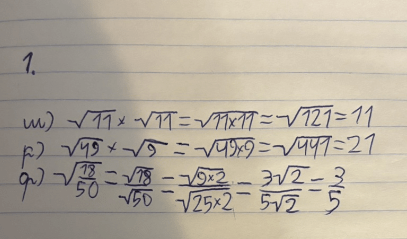 1.
ш) √11 × √11 = √11×11 = √121 = 11
р) √49 × √9 = √49×9 = √441 = 21
ф) √18/50 = √18/√50 = √9×2/√25×2 = 3√2/5√2 = 3/5